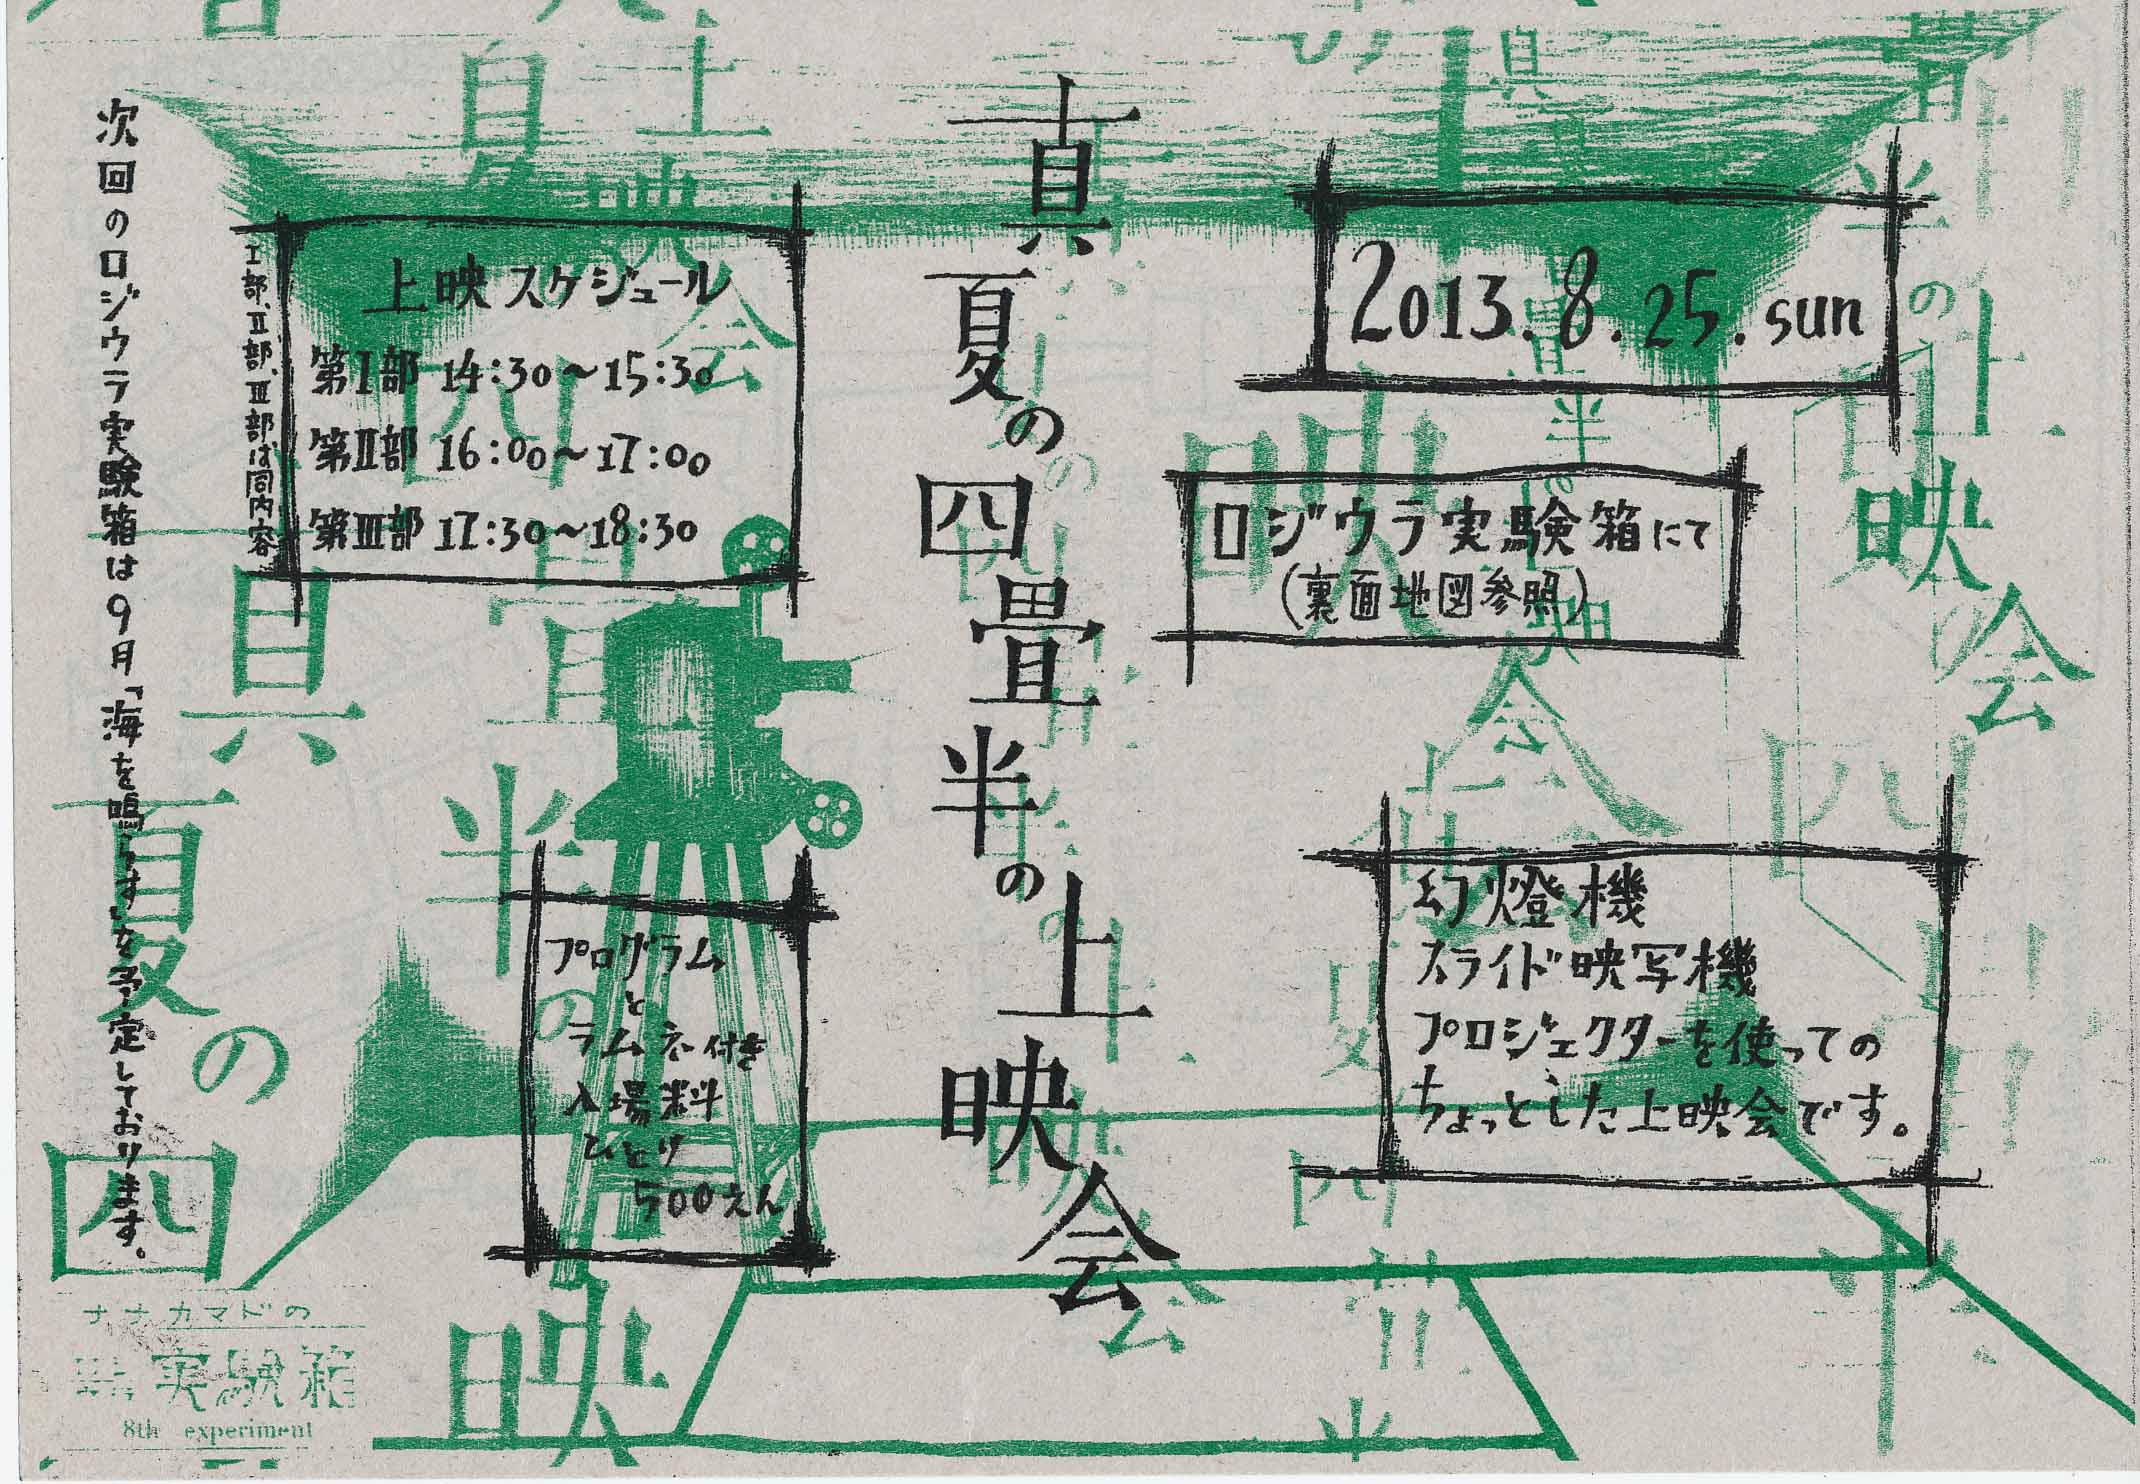 真夏の四畳半の上映会
2013.8.25.sun
ロジウラ実験箱にて
(裏面地図参照)
幻燈機
スライド映写機
プロジェクターを使っての
ちょっとした上映会です。
上映スケジュール
第Ⅰ部 14:30〜15:30
第Ⅱ部 16:00〜17:00
第Ⅲ部 17:30〜18:30
Ⅰ部、Ⅱ部、Ⅲ部は同内容
プログラム
と
ラムネ付き
入場料
ひとり
500えん
次回のロジウラ実験箱は9月「海を鳴らす」を予定しております。
ナナカマドの
実験箱
8th experiment